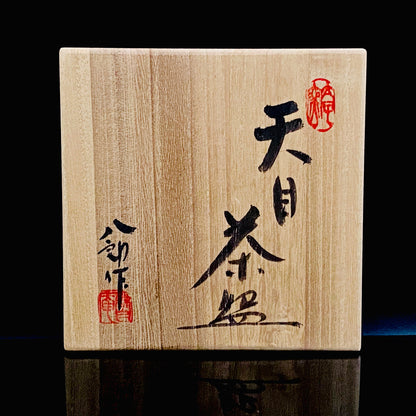 天目茶盌
八郎作